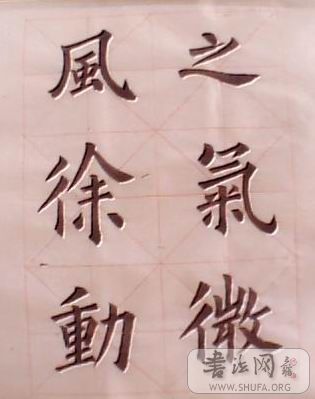 之氣微
風徐動
書法网
WWW.SHUFA.ORG